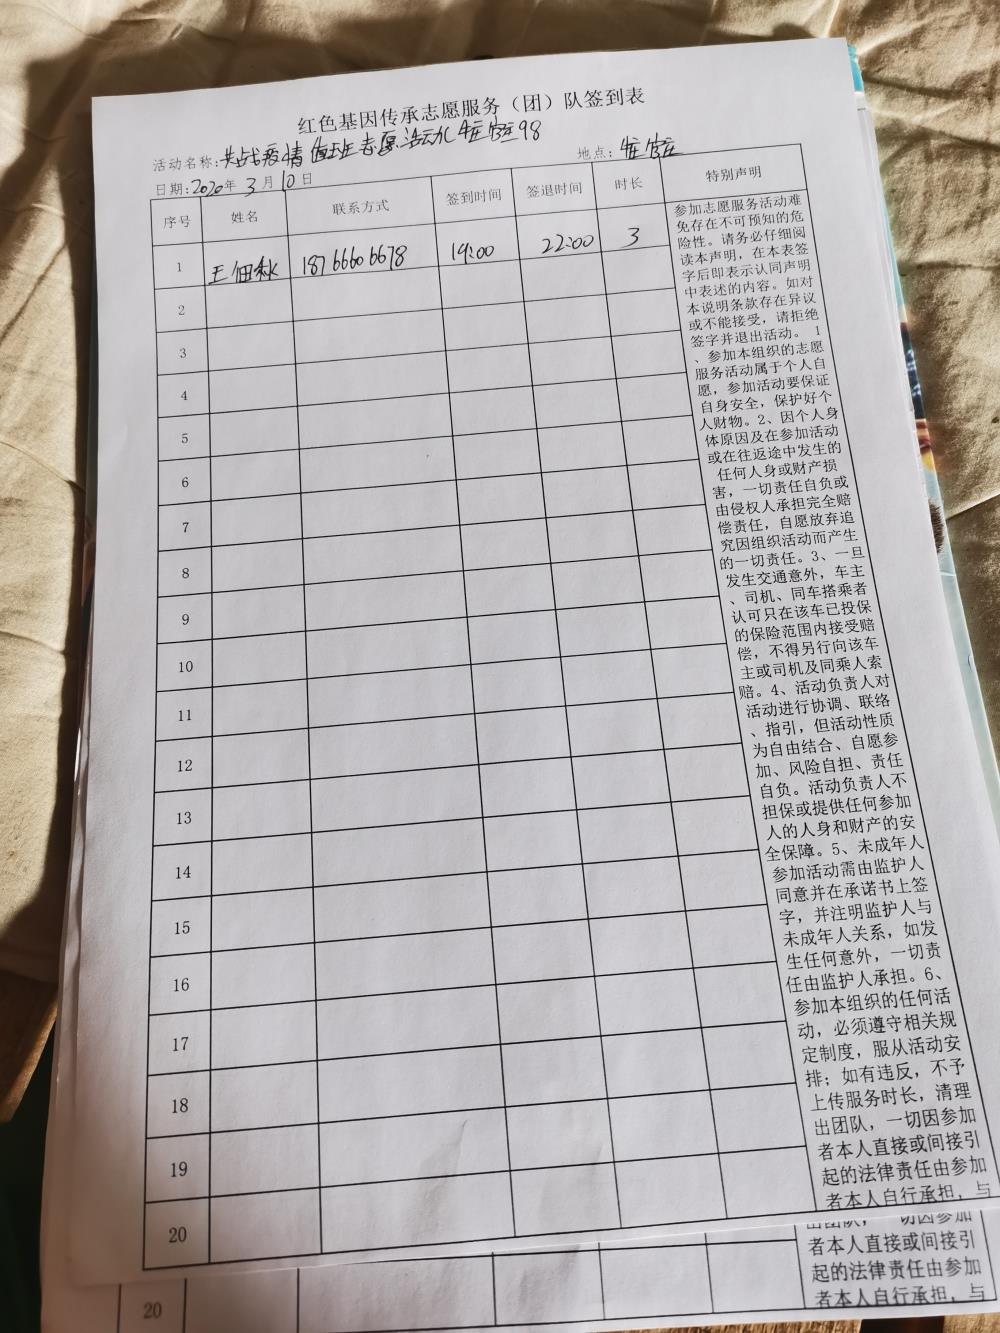 红色基因传承志愿服务（团）队签到表
活动名称：共战疫情值班志愿活动 98
地点：
日期：2020年 3月 10日
序号 姓名 联系方式 签到时间 签退时间 时长 特别声明
1 王佃秋 18766606678 19:00 22:00 3
2
3
4
5
6
7
8
9
10
11
12
13
14
15
16
17
18
19
20
参加志愿服务活动难
免存在不可预知的危
险性。请务必仔细阅
读本声明，在本表签
字后即表示认同声明
中表述的内容。如对
本说明条款存在异议
或不能接受，请拒绝
签字并退出活动。1
、参加本组织的志愿
服务活动属于个人自
愿，参加活动要保证
自身安全，保护好个
人财物。2、因个人身
体原因及在参加活动
或在往返途中发生的
任何人身或财产损
害，一切责任自负或
由侵权人承担完全赔
偿责任，自愿放弃追
究因组织活动而产生
的一切责任。3、一旦
发生交通意外，车主
、司机、同车搭乘者
认可只在该车已投保
的保险范围内接受赔
偿，不得另行向该车
主或司机及同乘人索
赔。4、活动负责人对
活动进行协调、联络
、指引，但活动性质
为自由结合、自愿参
加、风险自担、责任
自负。活动负责人不
担保或提供任何参加
人的人身和财产的安
全保障。5、未成年人
参加活动需由监护人
同意并在承诺书上签
字，并注明监护人与
未成年人关系，如发
生任何意外，一切责
任由监护人承担。6、
参加本组织的任何活
动，必须遵守相关规
定制度，服从活动安
排；如有违反，不予
上传服务时长，清理
出团队，一切因参加
者本人直接或间接引
起的法律责任由参加
者本人自行承担，与
出团队，一切因参加
者本人直接或间接引
起的法律责任由参加
者本人自行承担，与
20